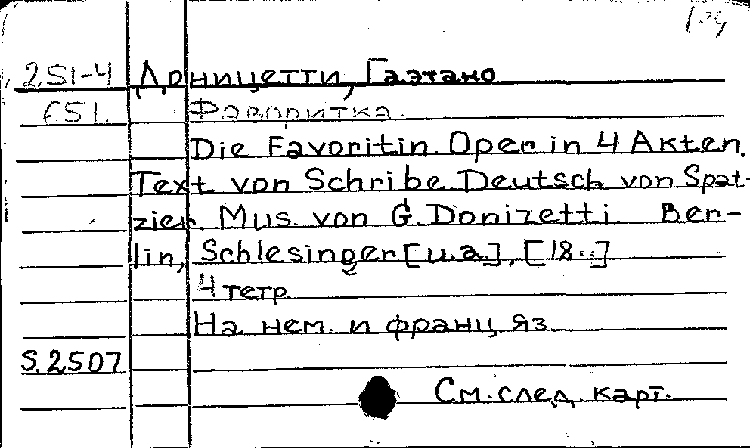 251-4 Доницетти, Гаэтано
651. Фаворитка.
Die Favoritin. Oper in 4 Akten.
Text von Schribe Deutsch von Spat-
zier. Mus. von G. Donizetti. Ber-
lin, Schlesinger [u.a.], [18..]
4 тетр.
На нем. и франц. яз.
S.2507
См. след. карт.